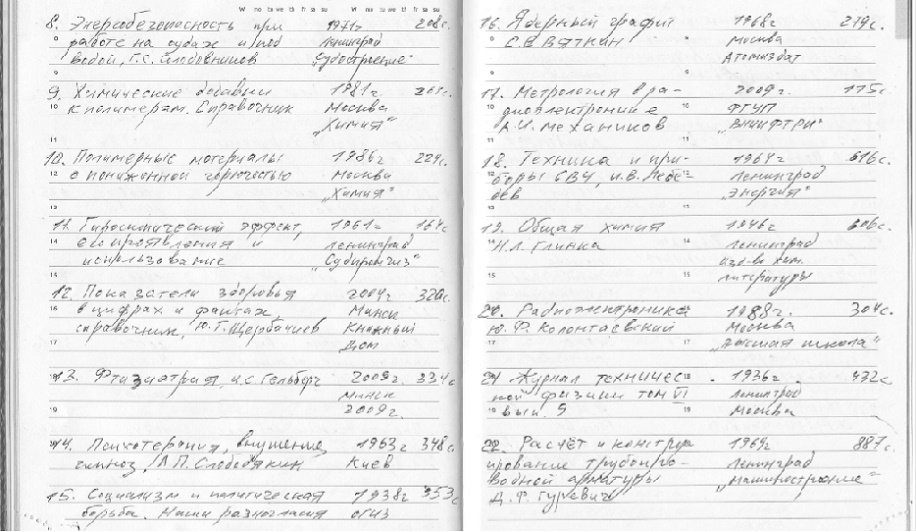 8. Энергобезопасность при 1971г 208с.
работе на судах и под Ленинград
водой, Г.С. "Судостроение"
9. Химические добавки 1981г
к полимерам. Справочник Москва
"Химия"
10. Полимерные материалы 1986г 224с.
с пониженной горючестью Москва
"Химия"
11. Гироскопический эффект, 1961г 164с
его проявления и Ленинград
использование "Судпромгиз"
12. Показатели здоровья 2004г 320с.
в цифрах и фактах, Минск
справочник, Ю.Т. Книжный
Дом
13. Фтизиатрия, 2009г. 334с
Минск
2009г.
14. Психотерапия, внушение, 1963г 348с.
гипноз, А.П. Слободяник Киев
15. Социализм и политическая 1938г 353с
борьба. Наши разногласия огиз
16. Ядерный графит 1968г 279с.
С.Е. Вяткин Москва
Атомиздат
17. Метрология в ра- 2009г. 175с
диоэлектронике ФГУП
А.И. Механиков "ВНИИФТРИ"
18. Техника и при- 1964г 616с.
боры СВЧ, И.В. Лебе- Ленинград
дев "Энергия"
19. Общая химия 1946г 606с.
Н.Л. Глинка Ленинград
изд-во хим.
литературы
20. Радиоэлектроника 1988г. 304с.
Ю.Ф. Колонтаевский Москва
"Высшая школа"
21 Журнал техничес- 1936г. 432с.
кой физики том VI Ленинград
вып. 5 Москва
22. Расчёт и констру- 1969г 887с.
ирование трубопро- Ленинград
водной арматуры "Машиностроение"
Д.Ф. Гуревич